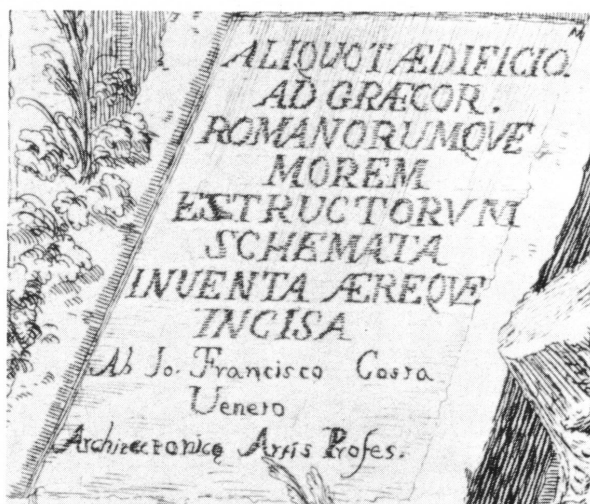 ALIQUOT ÆDIFICIO.
AD GRÆCOR.
ROMANORUMQVE
MOREM
ESTRUCTORVM
SCHEMATA
INVENTA ÆREQVE
INCISA
Ab Jo. Francisco Costa
Veneto
Architectonicę Artis Profes.